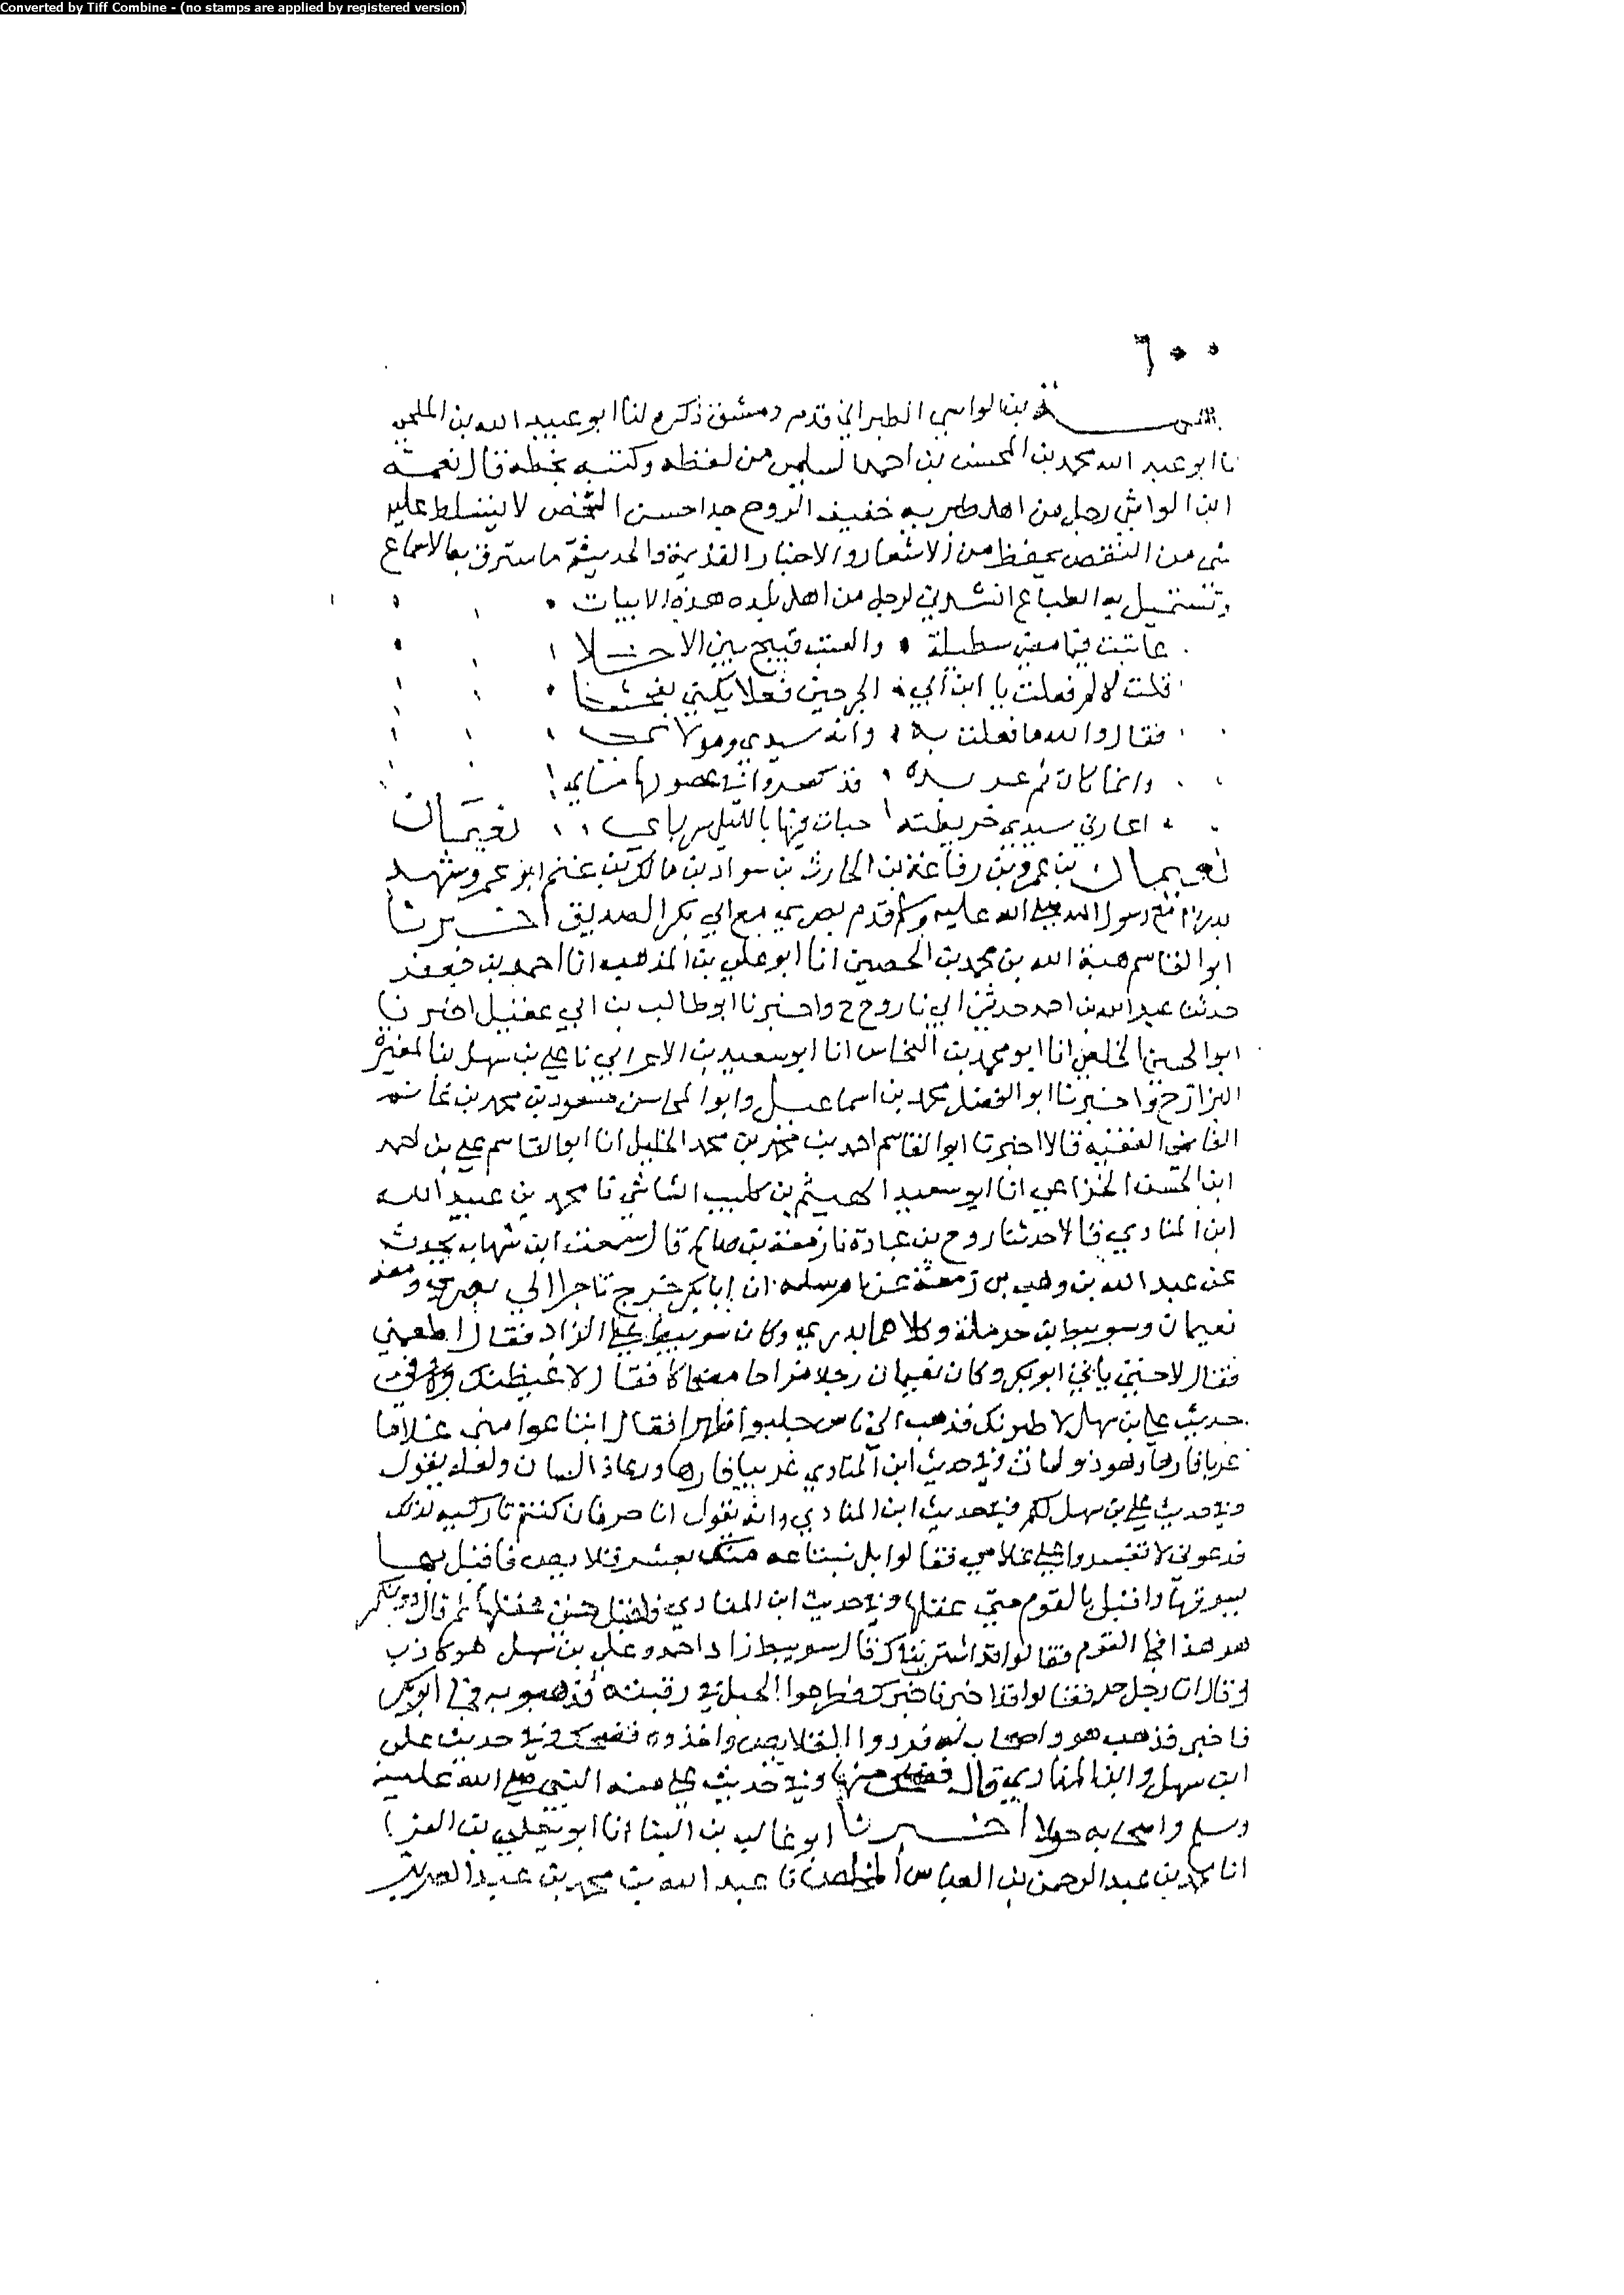 Converted by Tiff Combine - (no stamps are applied by registered version)
٦٠٠
بن الواسي الطبراني قدم دمشق ذكره لنا ابو عبيد الله بن الملحي
نا ابو عبد الله محمد بن المحسن بن احمد السلمي من لفظه وكتبه بخطه قال نعمة
ابن الواشي رجل من اهل طبرية خفيف الروح جدا حسن الشخص لا يتسلط عليه
شي من النقص يحفظ من الاشعار والاخبار القديمة والحديثة ما سترق به الاسماع
وتستميل به الطباع انشدني لرجل من اهل بلده هذه الابيات
عاتبت والعتب قبيح بين الاخلا
قلت له لم فعلت يا ابن ابي فعلا
فقال والله ما فعلت به وانه سيدي ومولا
وانما كان قد
اعارني سيدي خريطته حيات فيها بالليل نعيمان
نعيمان بن عمرو بن رفاعة بن الحارث بن سواد بن مالك بن غنم ابو عمرو شهد
بدرا مع رسول الله صلى الله عليه وسلم قدم بصرى مع ابي بكر الصديق اخبرنا
ابو القاسم هبة الله بن محمد بن الحصين انا ابو علي بن المذهب انا احمد بن جعفر
حدثنا عبد الله بن احمد حدثني ابي نا روح ح واخبرنا ابو طالب بن ابي عقيل اخبرنا
ابو الحسن الخلعي انا ابو محمد بن النحاس انا ابو سعيد بن الاعرابي نا علي بن سهل بن المغيرة
البزاز ح واخبرنا ابو الفضل محمد بن اسماعيل وابو المحاسن مسعود بن محمد بن غانم
القاضي الفقيه قالا اخبرنا ابو القاسم احمد بن محمد بن محمد الخليل انا ابو القاسم علي بن احمد
ابن الحسن الخزاعي انا ابو سعيد الهيثم بن كليب الشاشي نا محمد بن عبيد الله
ابن المنادي قالا حدثنا روح بن عبادة نا زمعة بن صالح قال سمعت ابن شهاب يحدث
عن عبد الله بن وهب بن زمعة عن ام سلمه ان ابا بكر خرج تاجرا الى بصرى ومعه
نعيمان وسويبط بن حرملة وكلاهما بدري وكان سويبط على الزاد فقال اطعمني
فقال لا حتى يا تي ابو بكر وكان نعيمان رجلا مزاحا مضحاكا فقال لا غيظنك وفي
حديث علي بن سهل لا طيرنك فذهب الى ناس جلبوا ظهرا فقال ابتاعوا مني غلاما
عربيا فارها وهو ذو لسان وفي حديث ابن المنادي غريبا فارها ورعاد اللسان ولعله يقول
وفي حديث علي بن سهل لكم في حديث ابن المنادي وانه يقول انا حر فان كنتم تاركيه لذلك
فدعوني لا تفسدوا علي غلامي فقالوا بل نبتاعه منك بعشر قلايص فاقبل بها
يسوقها واقبل بالقوم حتى عقلها وفي حديث ابن المنادي واقبل حتى عقلها ثم قال دونكم
هو هذا فجا القوم فقالوا قد اشتريناك فقال سويبط زاد احمد وعلي بن سهل هو كاذب
وقالا انا رجل حر فقالوا قد اخبرنا خبرك وطرحوا الحبل في رقبته فذهبوا به فجا ابو بكر
فاخبر فذهب هو واصحاب له فردوا القلايص واخذوه فضحك وفي حديث علي
ابن سهل وابن المنادي قال فضحك منها وفي حديث علي منه النبي صلى الله عليه
وسلم واصحابه حولا اخبرنا ابو غالب بن البنا انا ابو يعلى بن الفرا
انا محمد بن عبد الرحمن بن العباس المخلص نا عبد الله بن محمد بن عبد العزيز